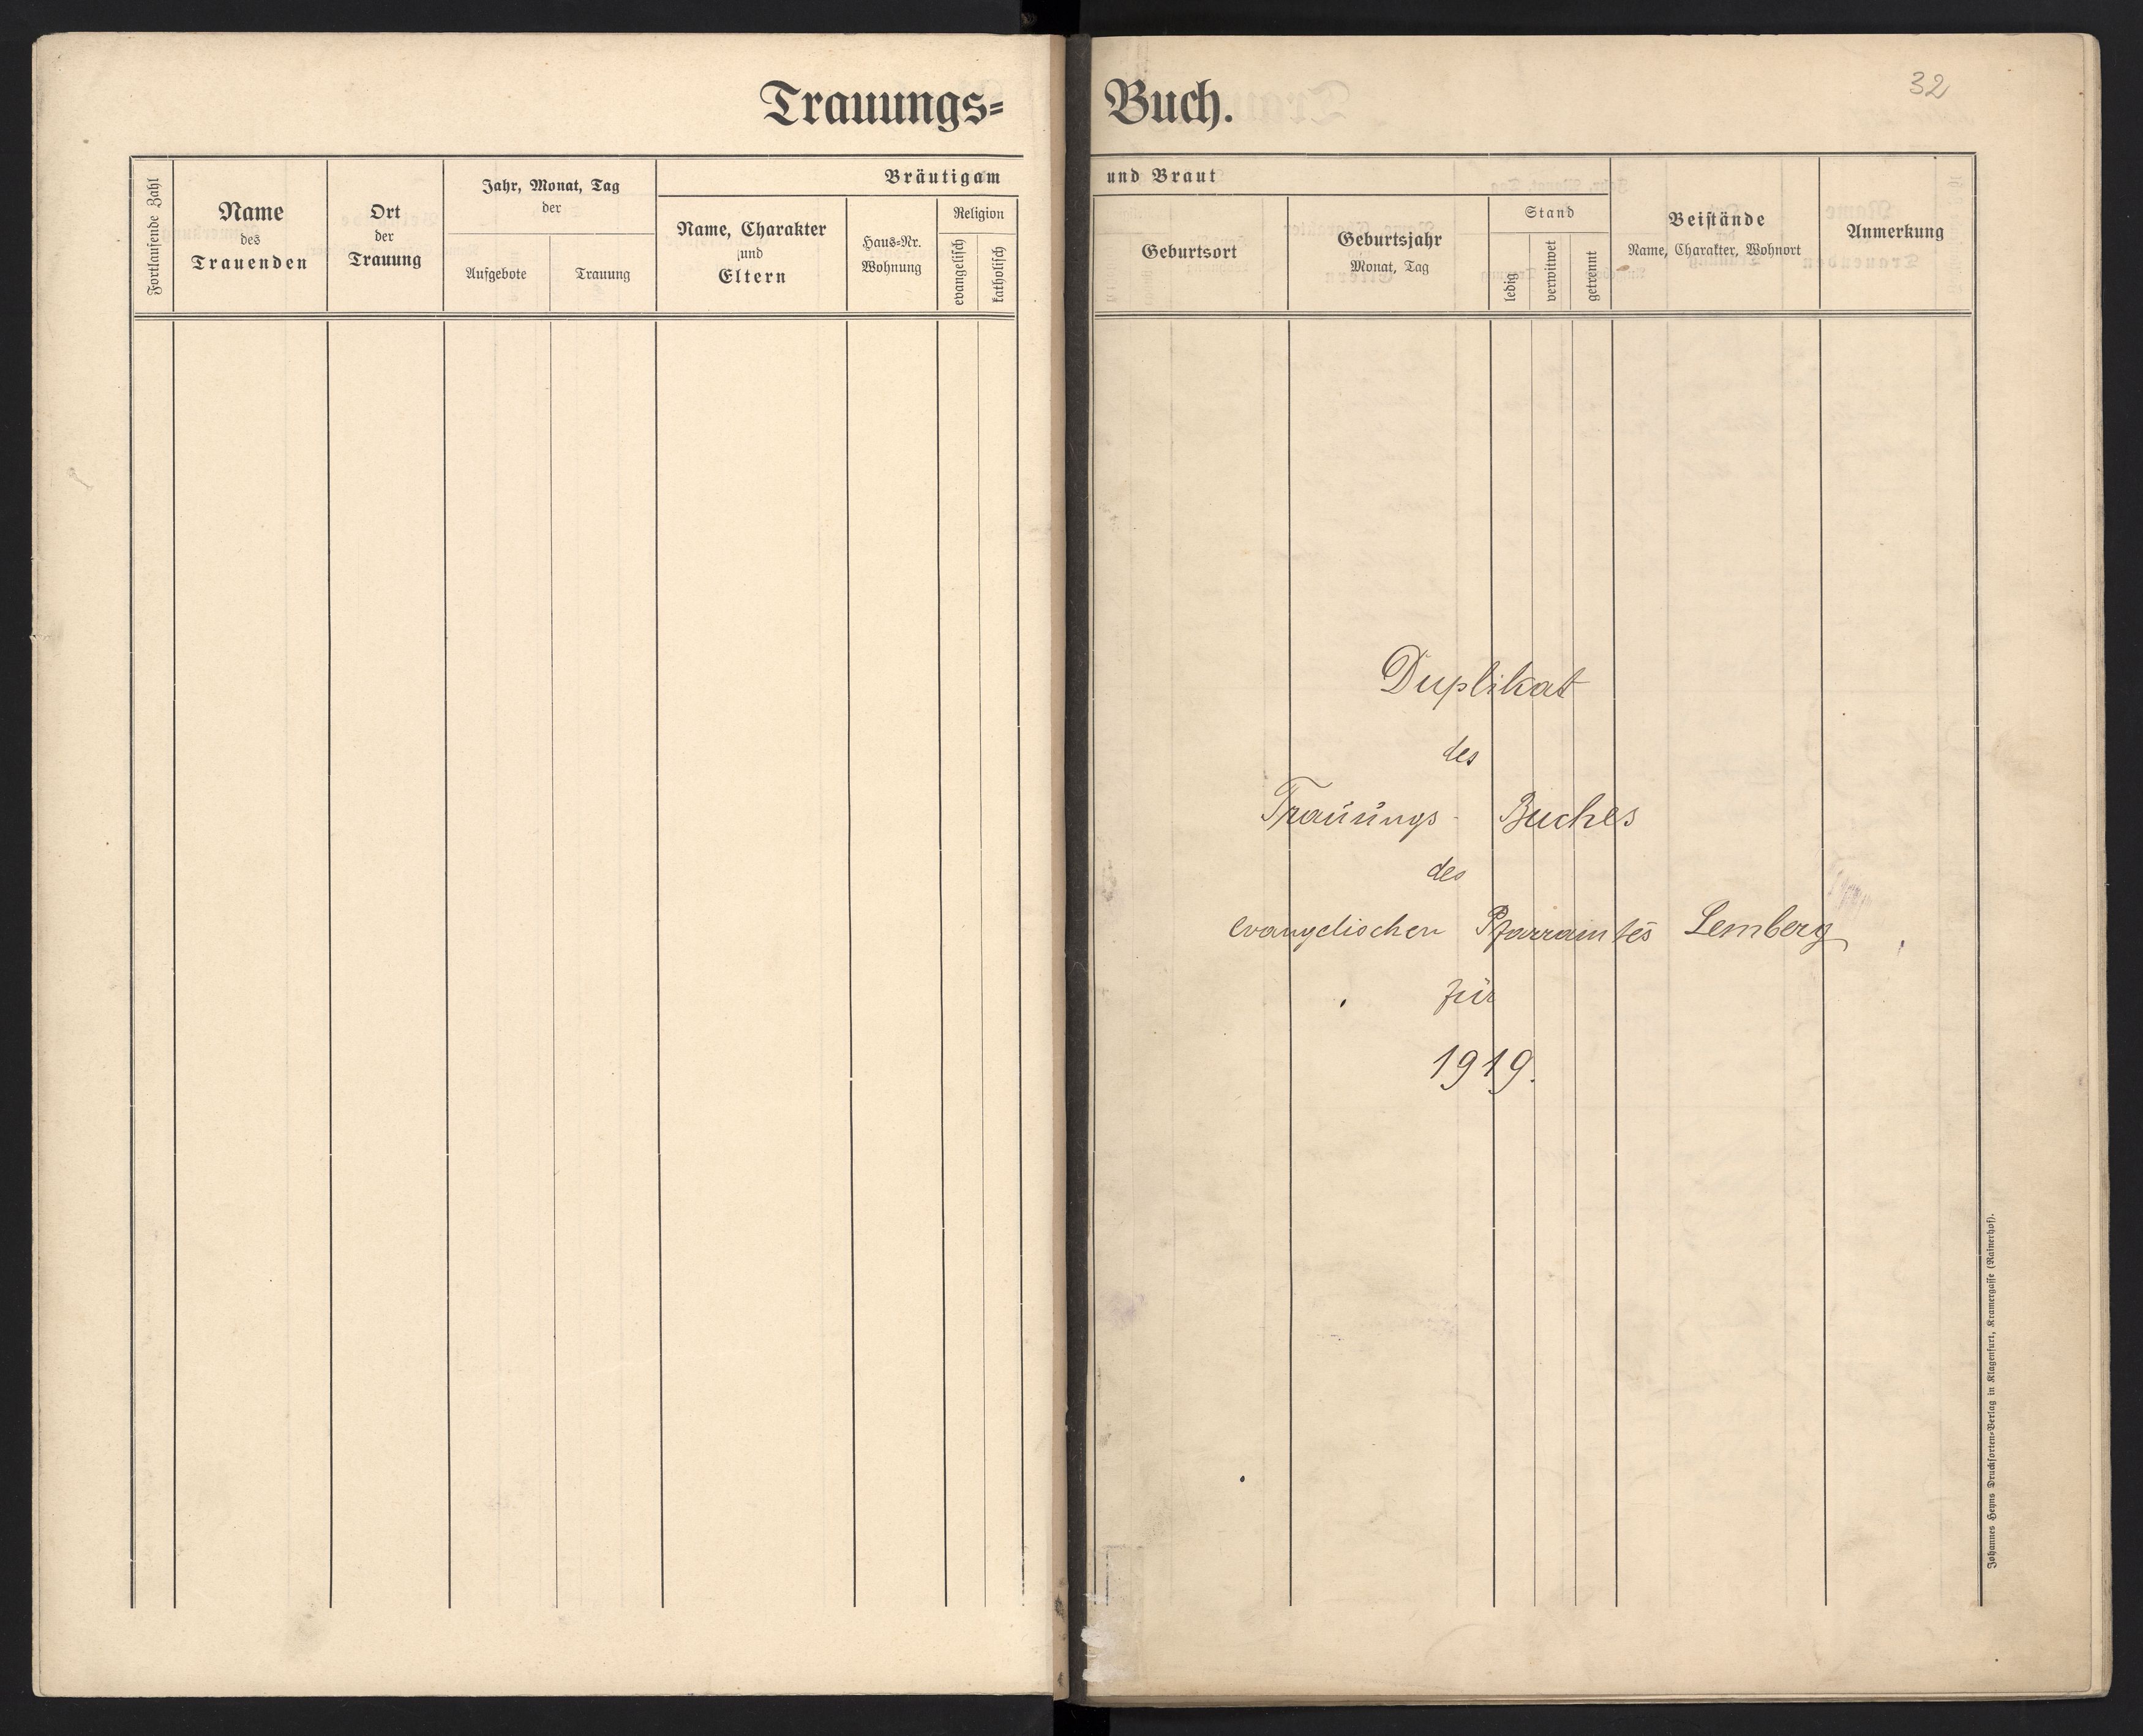 Trauungs=
Fortlaufende Zahl
Name
des
Trauenden
Ort
der
Trauung
Jahr, Monat, Tag
der
Aufgebote
Trauung
Bräutigam
Name, Charakter
und
Eltern
Haus=Nr.
Wohnung
Religion
evangelisch
katholisch
Buch.
32
und Braut
Geburtsort
Geburtsjahr
Monat, Tag
Stand
ledig
verwitwet
getrennt
Beistände
Name, Charakter, Wohnort
Anmerkung
Duplikat
des
Trauungs - Buches
des
evangelischen Pfarramtes Lemberg
für
1919.
Johannes Heyns Drucksorten=Verlag in Klagenfurt, Kramergasse (Rainerhof).